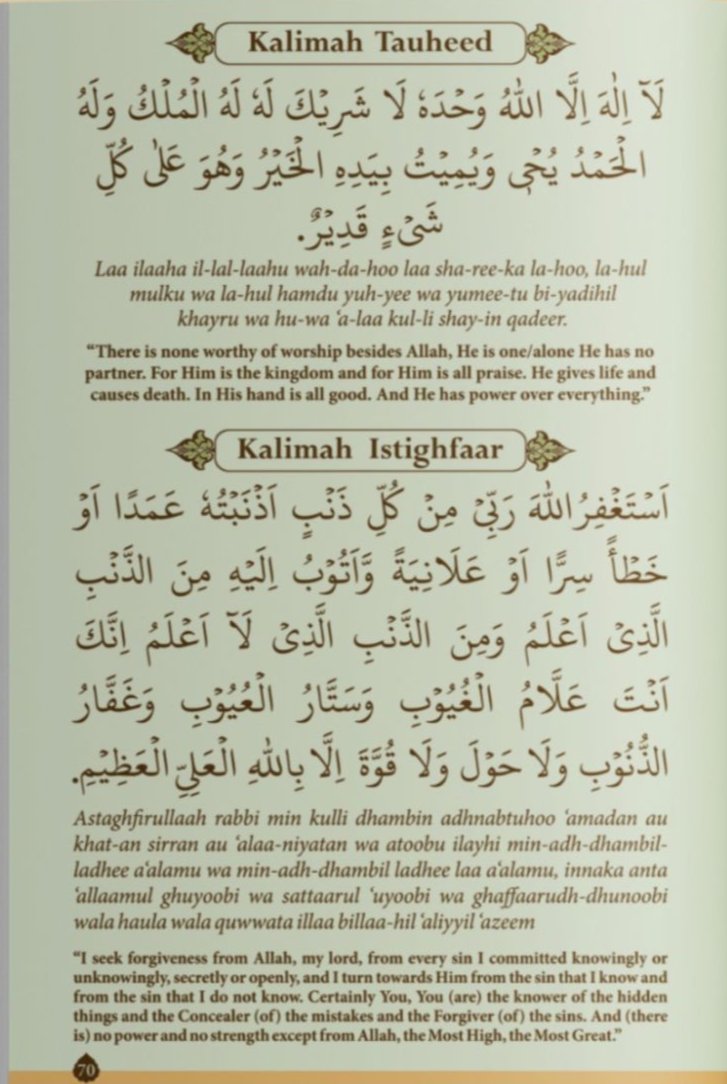 Kalimah Tauheed
لَآ اِلٰهَ اِلَّا اللّٰهُ وَحْدَهٗ لَا شَرِيْكَ لَهٗ لَهُ الْمُلْكُ وَلَهُ
الْحَمْدُ يُحْيٖ وَيُمِيْتُ بِيَدِهِ الْخَيْرُ وَهُوَ عَلٰى كُلِّ
شَيْءٍ قَدِيْرٌ.
Laa ilaaha il-lal-laahu wah-da-hoo laa sha-ree-ka la-hoo, la-hul
mulku wa la-hul hamdu yuh-yee wa yumee-tu bi-yadihil
khayru wa hu-wa ‘a-laa kul-li shay-in qadeer.
“There is none worthy of worship besides Allah, He is one/alone He has no
partner. For Him is the kingdom and for Him is all praise. He gives life and
causes death. In His hand is all good. And He has power over everything.”
Kalimah Istighfaar
اَسْتَغْفِرُ اللّٰهَ رَبِّيْ مِنْ كُلِّ ذَنْبٍ اَذْنَبْتُهٗ عَمَدًا اَوْ
خَطْأً سِرًّا اَوْ عَلَانِيَةً وَّاَتُوْبُ اِلَيْهِ مِنَ الذَّنْبِ
الَّذِيْ اَعْلَمُ وَمِنَ الذَّنْبِ الَّذِيْ لَآ اَعْلَمُ اِنَّكَ
اَنْتَ عَلَّامُ الْغُيُوْبِ وَسَتَّارُ الْعُيُوْبِ وَغَفَّارُ
الذُّنُوْبِ وَلَا حَوْلَ وَلَا قُوَّةَ اِلَّا بِاللّٰهِ الْعَلِيِّ الْعَظِيْمِ.
Astaghfirullaah rabbi min kulli dhambin adhnabtuhoo ‘amadan au
khat-an sirran au ‘alaa-niyatan wa atoobu ilayhi min-adh-dhambil-
ladhee a‘alamu wa min-adh-dhambil ladhee laa a‘alamu, innaka anta
‘allaamul ghuyoobi wa sattaarul ‘uyoobi wa ghaffaarudh-dhunoobi
wala haula wala quwwata illaa billaa-hil ‘aliyyil ‘azeem
“I seek forgiveness from Allah, my lord, from every sin I committed knowingly or
unknowingly, secretly or openly, and I turn towards Him from the sin that I know and
from the sin that I do not know. Certainly You, You (are) the knower of the hidden
things and the Concealer (of) the mistakes and the Forgiver (of) the sins. And (there
is) no power and no strength except from Allah, the Most High, the Most Great.”
70